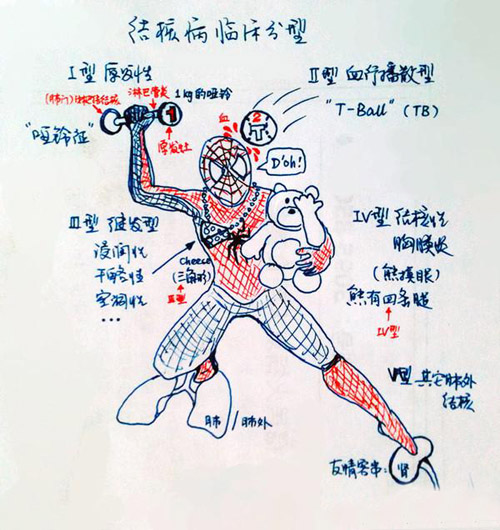 结核病临床分型
I型 原发性
II型 血行播散型
(肺门)淋巴结结核
淋巴管炎
1kg的哑铃
"T-Ball" (TB)
1
血
2
T
"哑铃征"
原发灶
D'oh!
III型 继发型
浸润性
干酪性
空洞性
...
Cheese
(三角形)
III型
IV型 结核性
胸膜炎
(熊摸眼)
熊有四条腿
IV型
V型 其它肺外
结核
肺/肺外
友情客串:肾